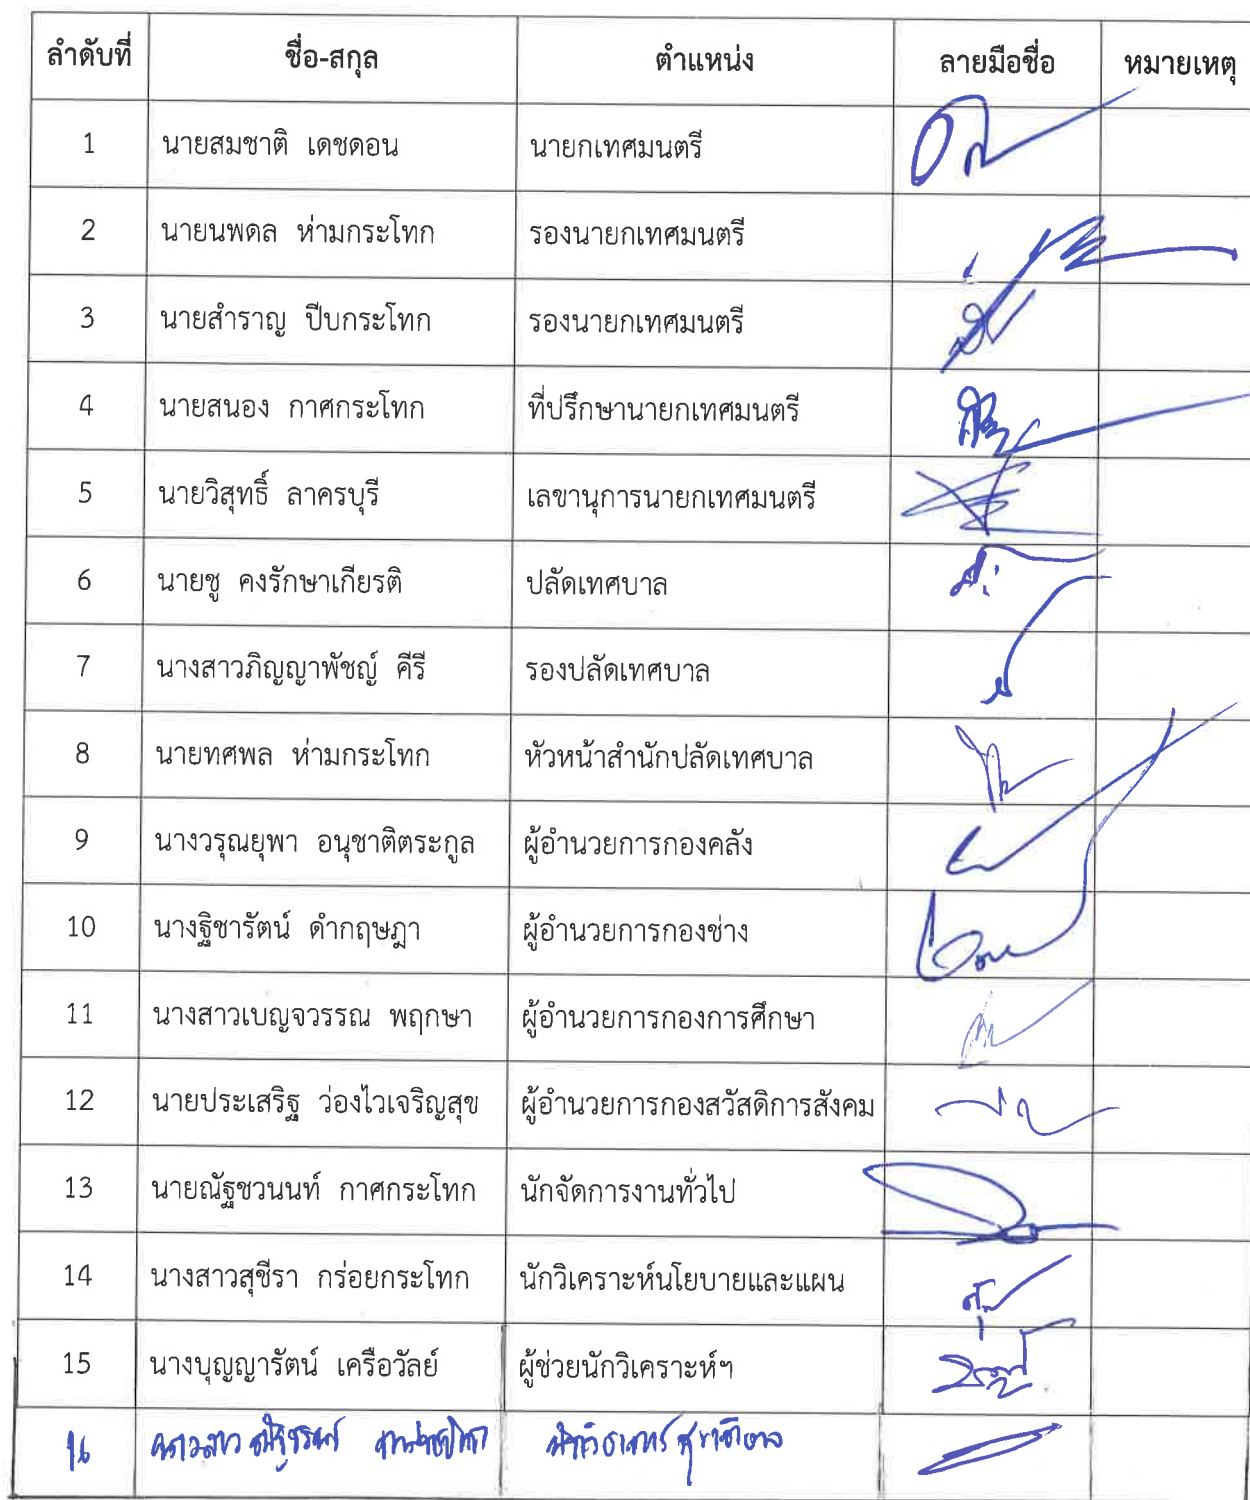 ลำดับที่ ชื่อ-สกุล ตำแหน่ง ลายมือชื่อ หมายเหตุ
1 นายสมชาติ เดชดอน นายกเทศมนตรี
2 นายนพดล ห่ามกระโทก รองนายกเทศมนตรี
3 นายสำราญ ปีบกระโทก รองนายกเทศมนตรี
4 นายสนอง กาศกระโทก ที่ปรึกษานายกเทศมนตรี
5 นายวิสุทธิ์ ลาครบุรี เลขานุการนายกเทศมนตรี
6 นายชู คงรักษาเกียรติ ปลัดเทศบาล
7 นางสาวภิญญาพัชญ์ คีรี รองปลัดเทศบาล
8 นายทศพล ห่ามกระโทก หัวหน้าสำนักปลัดเทศบาล
9 นางวรุณยุพา อนุชาติตระกูล ผู้อำนวยการกองคลัง
10 นางฐิชารัตน์ ดำกฤษฎา ผู้อำนวยการกองช่าง
11 นางสาวเบญจวรรณ พฤกษา ผู้อำนวยการกองการศึกษา
12 นายประเสริฐ ว่องไวเจริญสุข ผู้อำนวยการกองสวัสดิการสังคม
13 นายณัฐชวนนท์ กาศกระโทก นักจัดการงานทั่วไป
14 นางสาวสุชีรา กร่อยกระโทก นักวิเคราะห์นโยบายและแผน
15 นางบุญญารัตน์ เครือวัลย์ ผู้ช่วยนักวิเคราะห์ฯ
16 นางสาว